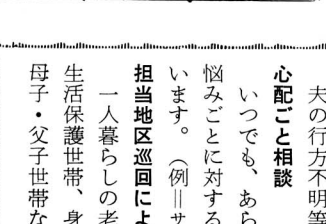 夫の行方不明等
心配ごと相談
いつでも、あら
悩みごとに対する
います。（例＝サ
担当地区巡回によ
一人暮らしの老
生活保護世帯、身
母子・父子世帯な